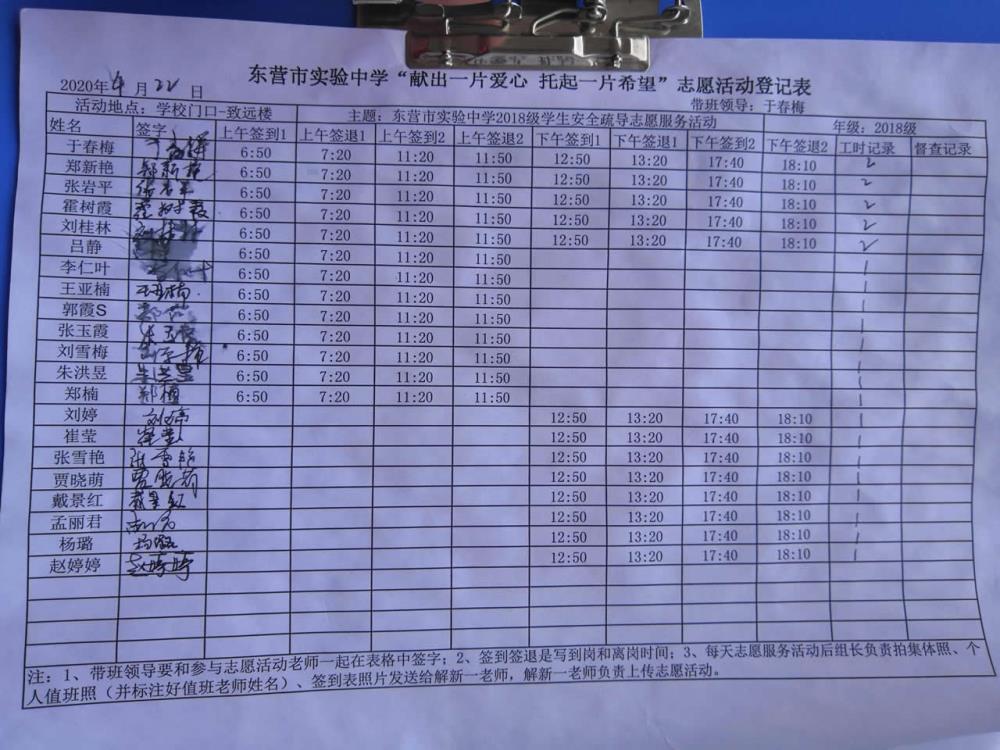 东营市实验中学“献出一片爱心 托起一片希望”志愿活动登记表
2020年4月22日
带班领导：于春梅
活动地点：学校门口-致远楼 主题：东营市实验中学2018级学生安全疏导志愿服务活动 年级：2018级
姓名 签字 上午签到1 上午签退1 上午签到2 上午签退2 下午签到1 下午签退1 下午签到2 下午签退2 工时记录 督查记录
于春梅 6:50 7:20 11:20 11:50 12:50 13:20 17:40 18:10 2
郑新艳 郑新艳 6:50 7:20 11:20 11:50 12:50 13:20 17:40 18:10 2
张岩平 张岩平 6:50 7:20 11:20 11:50 12:50 13:20 17:40 18:10 2
霍树霞 霍树霞 6:50 7:20 11:20 11:50 12:50 13:20 17:40 18:10 2
刘桂林 刘桂林 6:50 7:20 11:20 11:50 12:50 13:20 17:40 18:10 2
吕静 6:50 7:20 11:20 11:50 1
李仁叶 6:50 7:20 11:20 11:50 1
王亚楠 王亚楠 6:50 7:20 11:20 11:50 1
郭霞S 6:50 7:20 11:20 11:50 1
张玉霞 6:50 7:20 11:20 11:50 1
刘雪梅 6:50 7:20 11:20 11:50 1
朱洪昱 朱洪昱 6:50 7:20 11:20 11:50 1
郑楠 郑楠 6:50 7:20 11:20 11:50 1
刘婷 刘婷 12:50 13:20 17:40 18:10 1
崔莹 崔莹 12:50 13:20 17:40 18:10 1
张雪艳 张雪艳 12:50 13:20 17:40 18:10 1
贾晓萌 贾晓萌 12:50 13:20 17:40 18:10 1
戴景红 戴景红 12:50 13:20 17:40 18:10 1
孟丽君 12:50 13:20 17:40 18:10 1
杨璐 杨璐 12:50 13:20 17:40 18:10 1
赵婷婷 赵婷婷 12:50 13:20 17:40 18:10 1
注：1、带班领导要和参与志愿活动老师一起在表格中签字；2、签到签退是写到岗和离岗时间；3、每天志愿服务活动后组长负责拍集体照、个
人值班照（并标注好值班老师姓名）、签到表照片发送给解新一老师，解新一老师负责上传志愿活动。